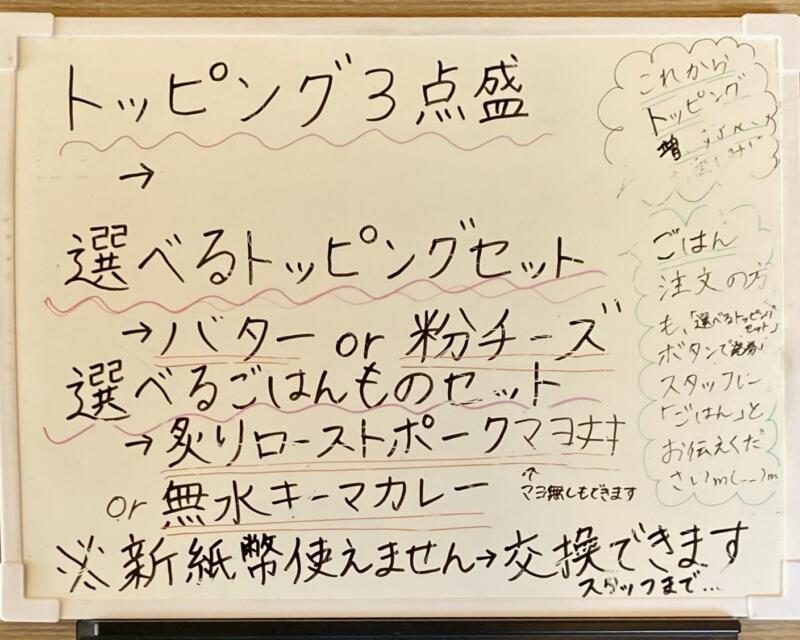 トッピング3点盛
→
選べるトッピングセット
→バター or 粉チーズ
選べるごはんものセット
→炙りローストポークマヨ丼
↑
マヨ無しもできます
or 無水キーマカレー
※新紙幣使えません→交換できます
スタッフまで...
これから
トッピング
増
ごはん
注文の方
も、「選べるトッピング
セット」
ボタンで発券し
スタッフに
「ごはん」と
お伝えくだ
さいm(__)m